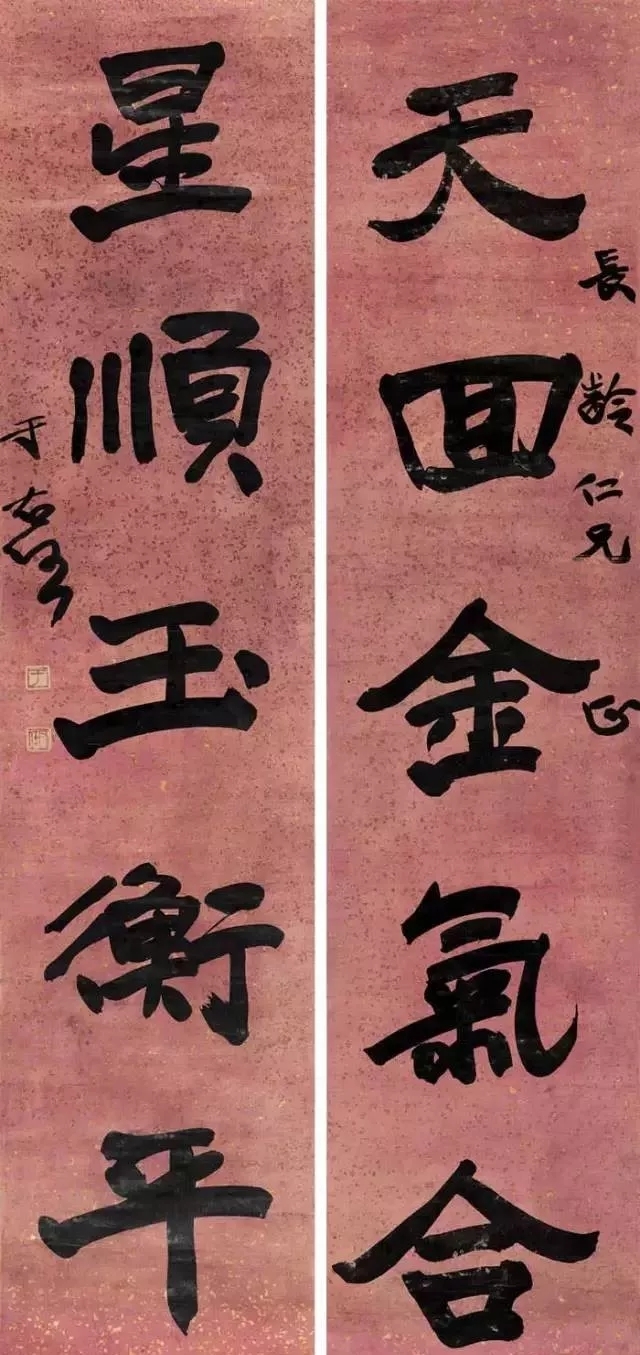 長齡仁兄正
天回金氣合
星順玉衡平
于右任